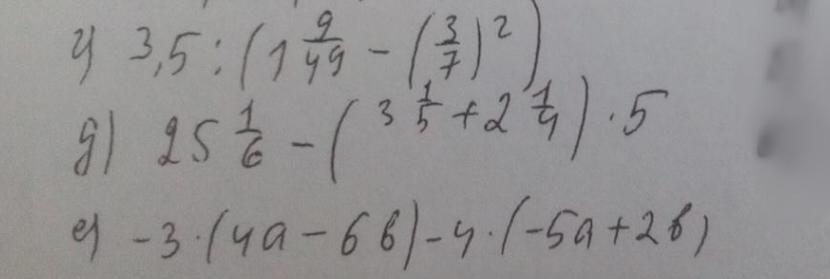 г) 3,5 : (1 9/49 − (3/7)²)
д) 25 1/6 − (3 1/5 + 2 1/4) · 5
е) −3 · (4а − 6в) − 4 · (−5а + 2в)